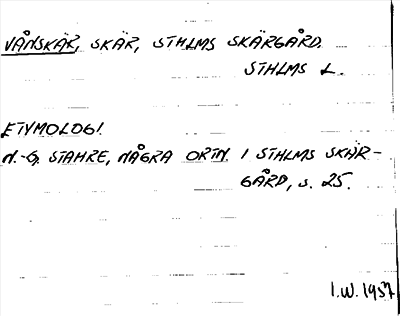 VÅNSKÄR, SKÄR, STHLMS SKÄRGÅRD.
STHLMS L.
ETYMOLOGI.
N.-G. STAHRE, NÅGRA ORTN. I STHLMS SKÄR-
GÅRD, s. 25.
I.W. 1957